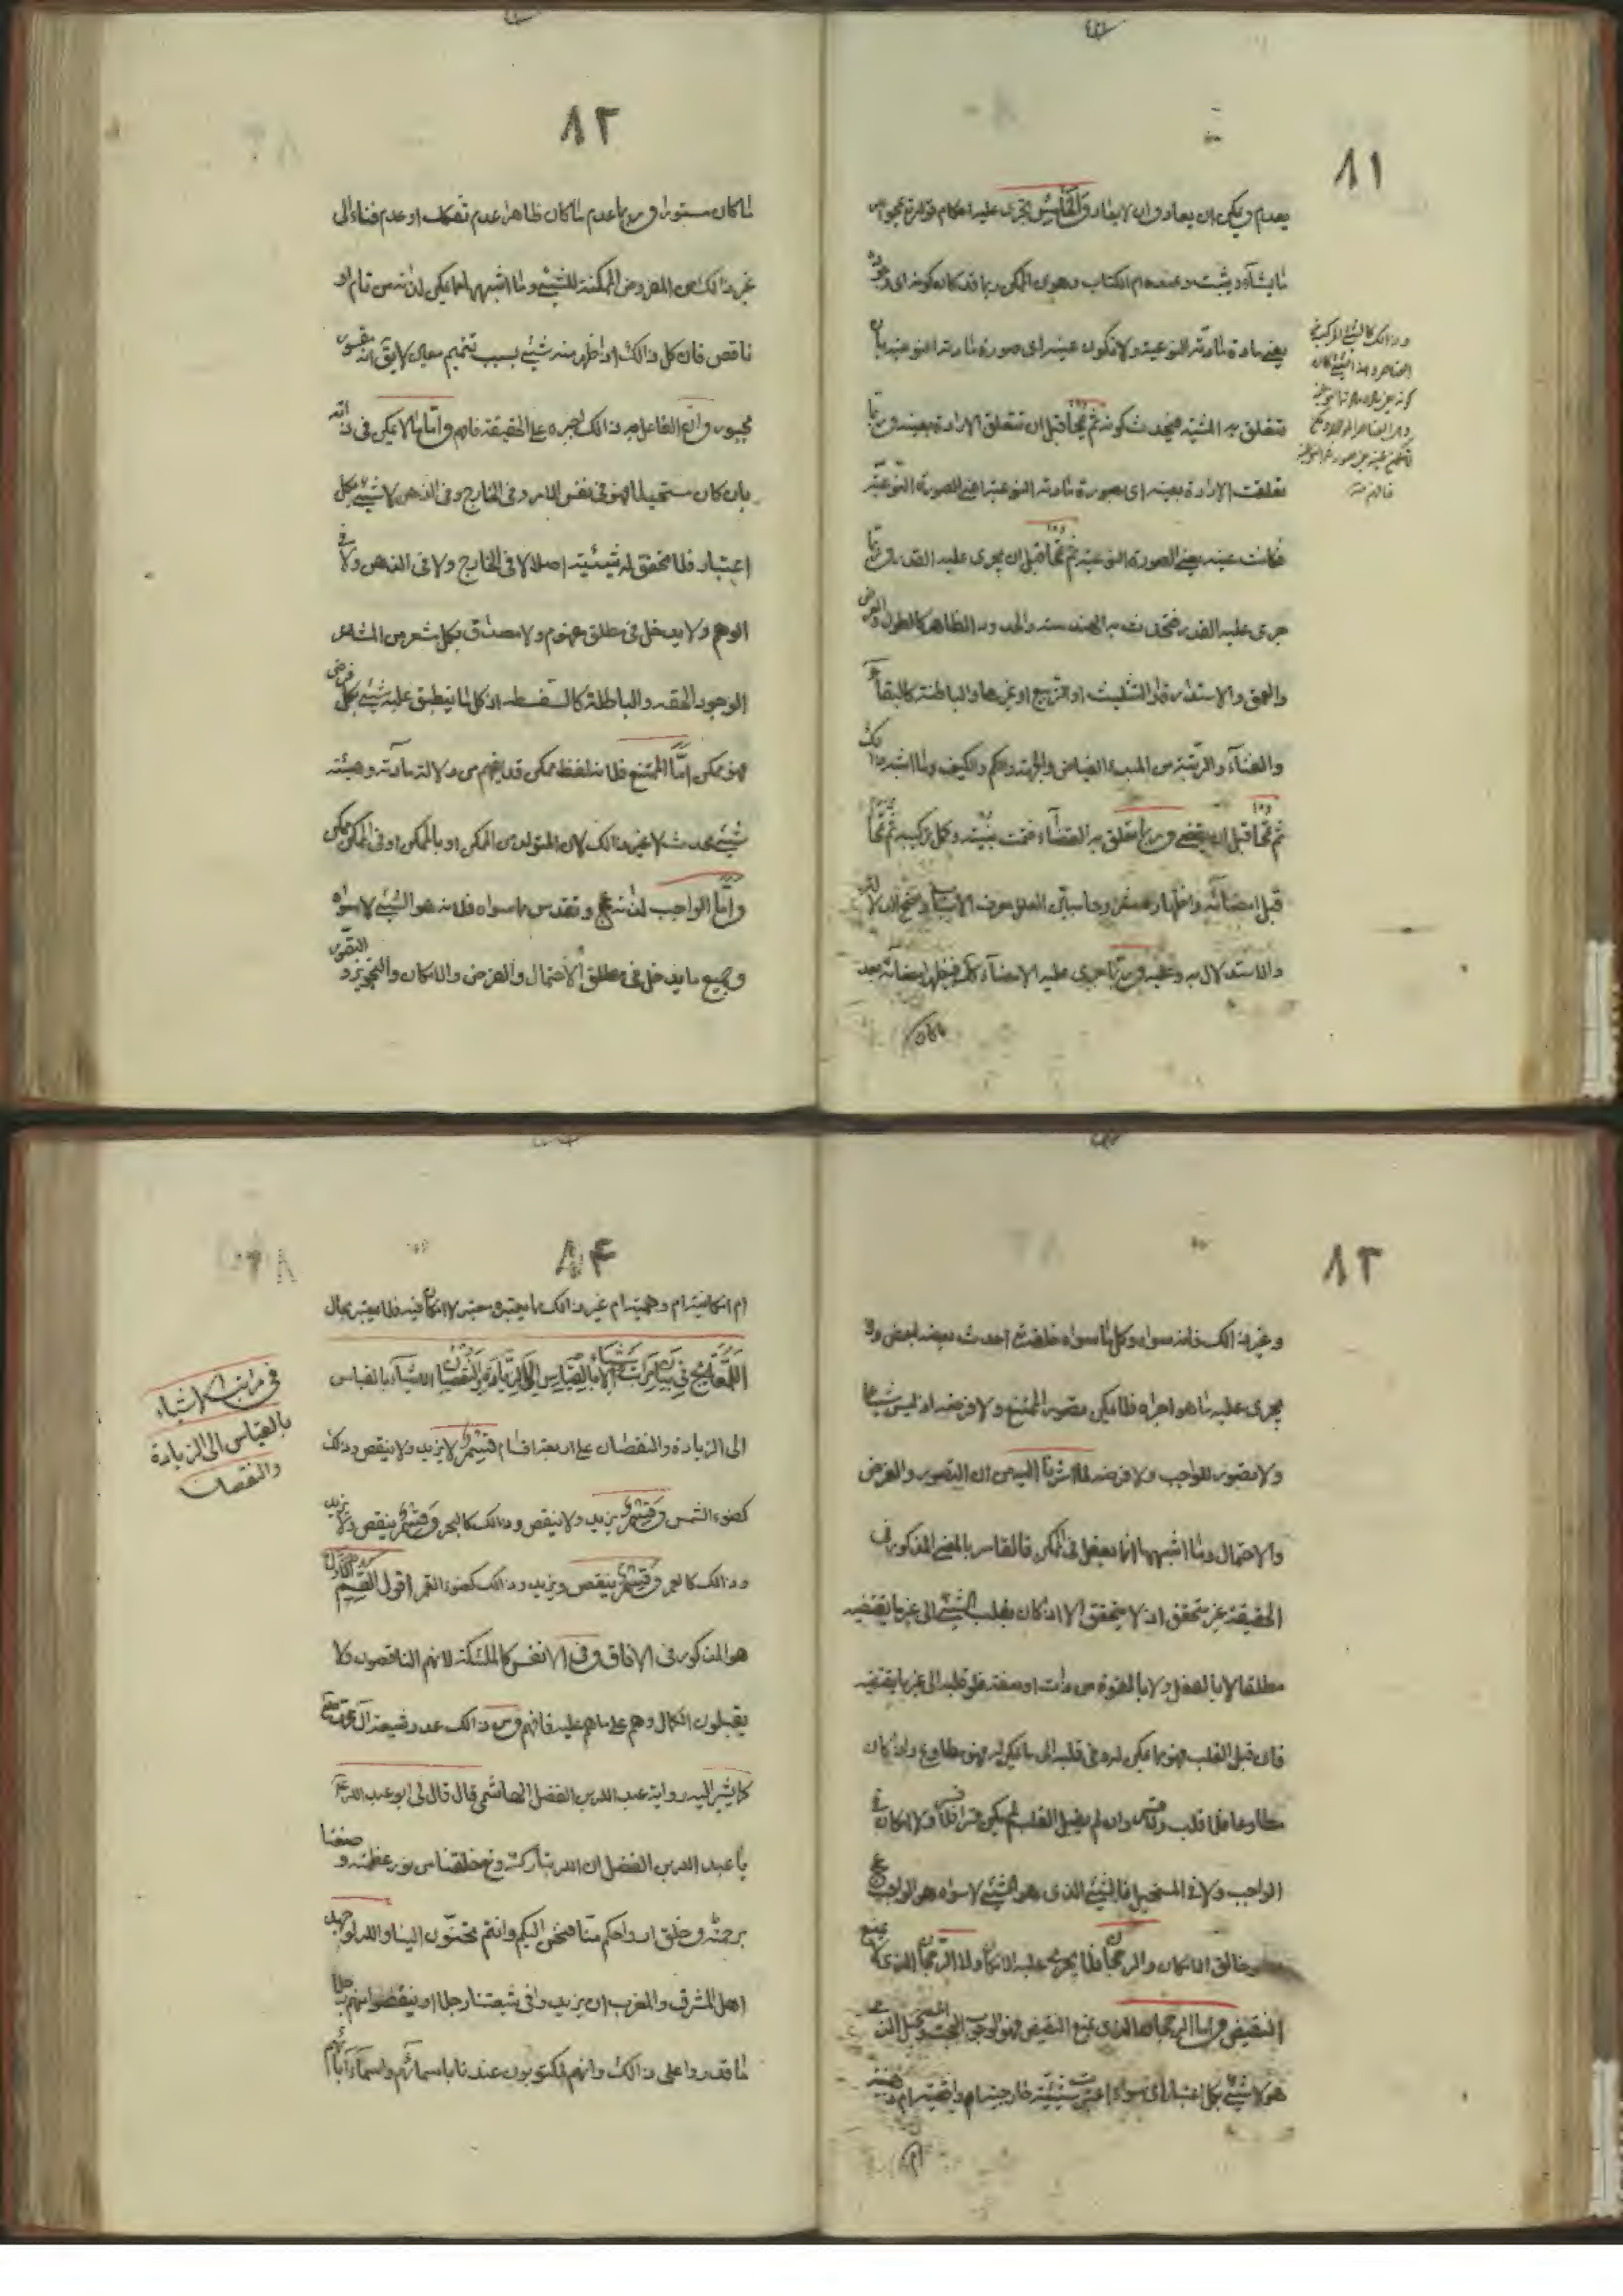 ٨١
يعدم ويمكن ان يعاد وان لا يعاد والخامس يجرى عليه احكام قوله تع يمحو الله
ما يشآء ويثبت وعنده ام الكتاب وهو الممكن ربما قد كان كونه اى
يعنى مادة مادته النوعية ولا تكون عينه اى صورة مادته النوعية بان
تتعلق به المشية فيحدث كونه ثم يمحا قبل ان تتعلق الارادة بعينه وربما
تعلقت الارادة بعينه اى بصورة مادته النوعية اعنى الصورة النوعية
فكانت عينه يعنى الصورة النوعية ثم تمحا قبل ان يجرى عليه القدر وربما
جرى عليه القدر فتحدث به الهندسة والحدود الظاهرة كالطول والعرض
والعمق والاستدارة او التثليث او التربيع او غيرها والباطنة كالبقآء
والفنآء والرتبة من المبدء الفياض والجهة والكم والكيف وما اشبه ذلك
ثم تمحا قبل ان يقضى وربما تعلق به القضآء فتمت بنيته وكمل تركيبه ثم تمحا
قبل امضائه واظهاره
والاستدلال به وعليه وربما جرى عليه الامضآء
وذالك كالشئ المركب من
العناصر
فافهم منه
٨٢
ما كان مستورا وربما عدم ما كان ظاهرا عدم تفكك او عدم فناء الى
غير ذالك من الفروض الممكنة للشئ وما اشبهها مما يمكن لذاته من تام او
ناقص فان كل ذالك اذا ظهر منه شئ بسبب تتميم معين لا يق انه مقسور
مجبور وان الفاعل به ذالك اجبره على الحقيقة فافهم واما ما لا يمكن فى ذاته
بان كان مستحيلا فهو فى نفس الامر وفى الخارج وفى الذهن لا شئ بكل
اعتبار فلا تحقق له شيئية اصلا لا فى الخارج ولا فى الذهن ولا فى
الوهم ولا يدخل فى مطلق مفهوم ولا مصداق بكل مشعر من المشاعر
الوجود الحقة والباطلة كالسفسطه اذ كل ما ينطبق عليه شئ بكل فرض
فهو ممكن اما الممتنع فلانه لفظ ممكن قد يفهم من دلالة مادته وهيئته
شئ محدث لا غير ذالك لان المتولد من الممكن او بالممكن او فى الممكن ممكن
واما الواجب لذاته عج وتقدس ما سواه فلانه هو الشئ لا سواه
وجميع ما يدخل فى مطلق الاحتمال والفرض والامكان والتجويز والتصور
٨٣
وغير ذالك فانه سواه وكل ما سواه خلقه احدث بعضه لبعض ولا
يجرى عليه ما هو اجراه فلا يمكن تصور الممتنع ولا فرضه اذ ليس شيئا
ولا تصور للواجب ولا فرضه لما اشرنا اليه من ان التصور والفرض
والاحتمال وما اشبهها انما تعقل فى الممكن فالقاسر بالمعنى المذكور فى
الحقيقة غير متحقق اذ لا يتحقق الا اذا كان يقلب الشئ الى غير ما يقتضيه
مطلقا لا بالفعل ولا بالقوة من ذات او صفة فلو قلبه الى غير ما يقتضيه
فان قبل القلب فهو ما يمكن له وفى قلبه الى ما يمكن له فهو مطاوع واذا كان
مطاوعا فلا قلب ولا قسر وان لم يقبل القلب لم يكن قسرا فلا ولا امكان فى
الواجب ولا فى المستحيل فالشئ الذى هو الشئ لا سواه هو الواجب عج
خالق الامكان والرجحان فلا يجرى عليه الامكان ولا الرجحان الذى لا يمنع
النقيض واما الرجحان الذى يمنع النقيض فهو الوجوب البحت
هو لا شئ بكل اعتبار اى سواء اعتبرت شيئيته خارجية ام
٨۴
ام امكانية ام وهمية ام غير ذالك مما يعتبر معتبر لا امكان فيه فلا يعتبر بحال
اللمعة فى بيان مراتب الاشياء بالقياس الى الزيادة والنقصان الاشيآء بالقياس
الى الزيادة والنقصان على اربعة اقسام قسم لا يزيد ولا ينقص وذلك
كضوء الشمس وقسم يزيد ولا ينقص وذالك كالبحر وقسم ينقص ولا يزيد
وذالك كالعمر وقسم ينقص ويزيد وذالك كضوء القمر اقول القسم الاول
هو المذكور فى الافاق وفى الانفس كالملئكة لانهم الناقصون ولا
يقبلون الكمال وهم على ما هم عليه فافهم ومن ذالك عدد شيعة آل محمد
كما يشير اليه رواية عبد الله بن الفضل الهاشمى قال قال لى ابو عبد الله ع
يا عبد الله بن الفضل ان الله تبارك وتع خلقنا من نور عظمته وصنعنا
برحمته وخلق ارواحكم منا فنحن نحن اليكم وانتم تحنون الينا والله لو جهد
اهل المشرق والمغرب ان يزيدوا فى شيعتنا رجلا او ينقصوا منهم رجلا
ما قدروا على ذالك وانهم لمكتوبون عندنا باسمائهم واسمآء آبائهم
فى مراتب الاشياء
بالقياس الى الزيادة
والنقصان